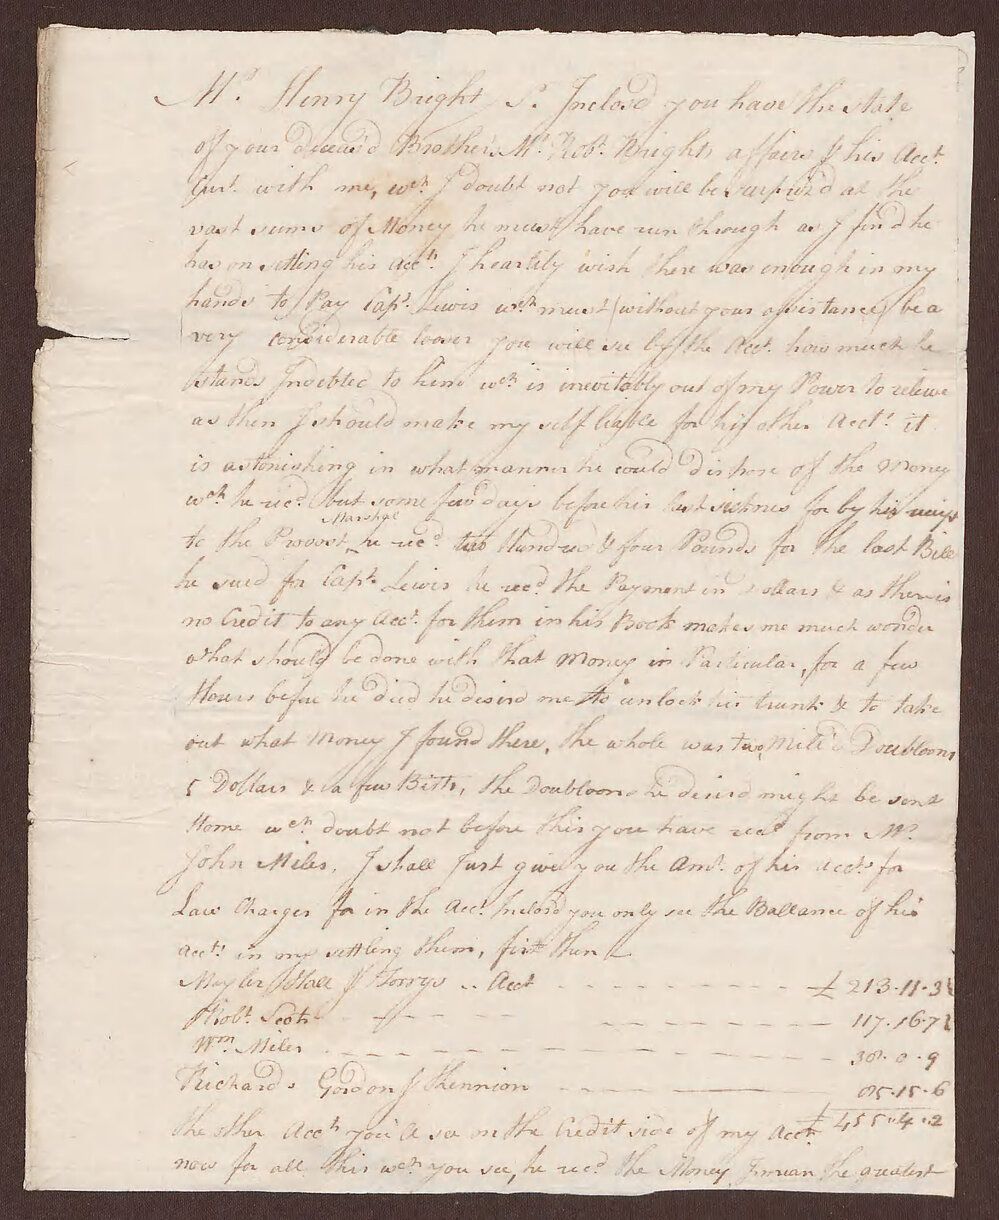 Mr. Henry Bright Sr. Inclosd you have the state
of your deceasd Brother Mr. Robt. Brights affairs & his Acct.
Curt. with me, wch. I doubt not you will be surpriz'd at the
vast sums of Money he must have run through as I find he
has on settling his Accts. I heartily wish there was enough in my
hands to Pay Capt. Lewis wch. must (without your assistance) be a
very considerable looser you will see by the Acct. how much he
stands Indebted to him wch. is inevitably out of my Power to relieve
as then I should make my self liable for his other Accts. it
is astonishing in what manner he could dispose of the Money
wch. he recd. but some few days before his last sickness for by his
to the Provost Marshal he recd. two Hundred & four Pounds for the last Bill
he sued for Capt. Lewis he recd. the Payment in Dollars & as there is
no Credit to any Acct. for them in his Book makes me much wonder
what should be done with that Money in Particular, for a few
Hours before he died he desird me to unlock his trunk & to take
out what Money I found there, the whole was two Mill'd Doubloons
5 Dollars & a few Bitts, the Doubloons he desird might be sent
Home wch. doubt not before this you have recd. from Mr.
John Miles, I shall Just give you the Amt. of his accts. for
Law Charges for in the Acct. Inclosd you only see the Ballance of his
Accts. in my settling them, first then
Mayler Hall & Torrys .. Acct £ 213.11.3½
Robt. Scott 117.16.7½
Wm. Miles 38.0.9
Richards Gordon & Kennion 85.15.6
£ 455.4.2
the other Accts. you'l see on the Credit side of my Acct.
now for all this wch. you see, he recd. the Money, I mean the greatest